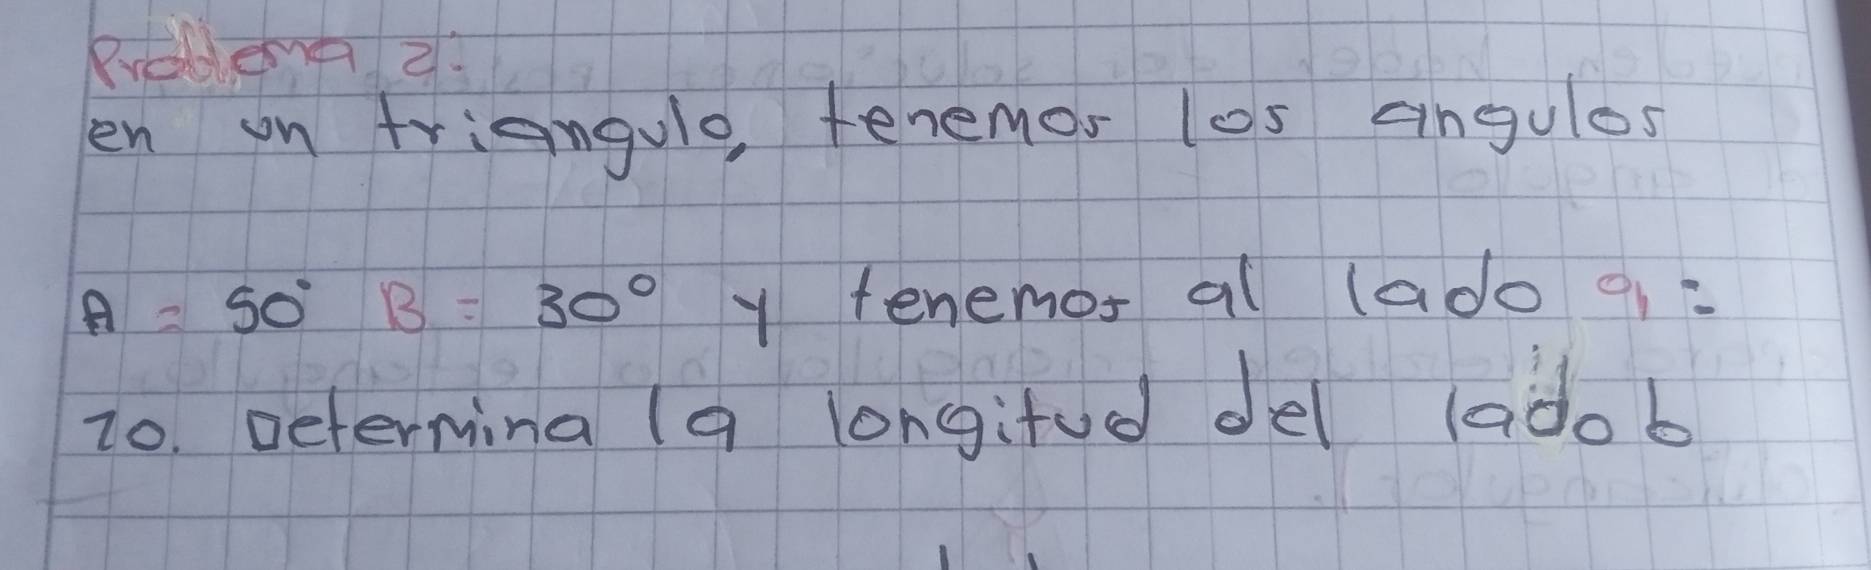 Problema 2:
en un triangulo, tenemos los angulos
A = 50° B = 30° y tenemos al lado a =
10. Determina la longitud del lado b